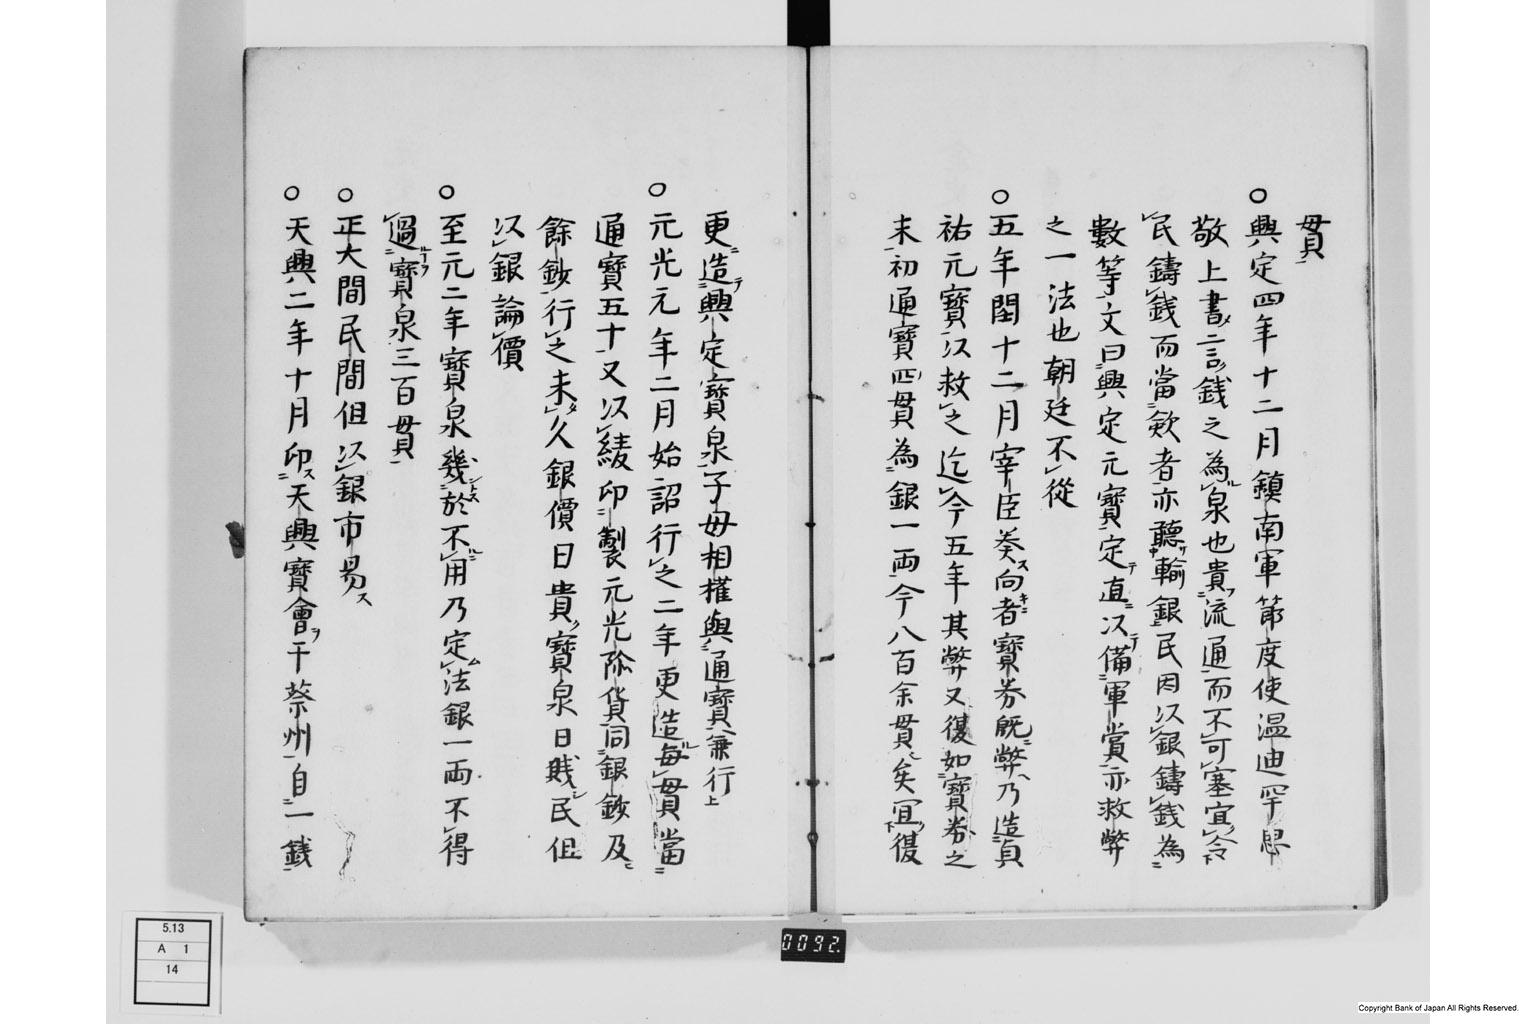 貫
○興定四年十二月鎮南軍節度使温迪罕思
敬上書言錢之為泉也貴流通而不可塞宜令
民鑄錢而當欸者亦聽輸銀民因以銀鑄錢為
數等文曰興定元寶定直以備軍賞亦救弊
之一法也朝廷不從
○五年閏十二月宰臣奏向者寶券既弊乃造貞
祐元寶以救之迄今五年其弊又復如寶券之
末初通寶四貫為銀一両今八百余貫矣宜復
更造興定寶泉子母相権與通寶兼行
○元光元年二月始詔行之二年更造每貫當
通寶五十又以綾印製元光珎貨同銀鈔及
餘鈔行之未久銀價日貴寶泉日賎民但
以銀論價
○至元二年寶泉幾於不用乃定法銀一両不得
過寶泉三百貫
○正大間民間但以銀市易
○天興二年十月印天興寶會于蔡州自一錢
5.13
A 1
14
0092.
Copyright Bank of Japan All Rights Reserved.